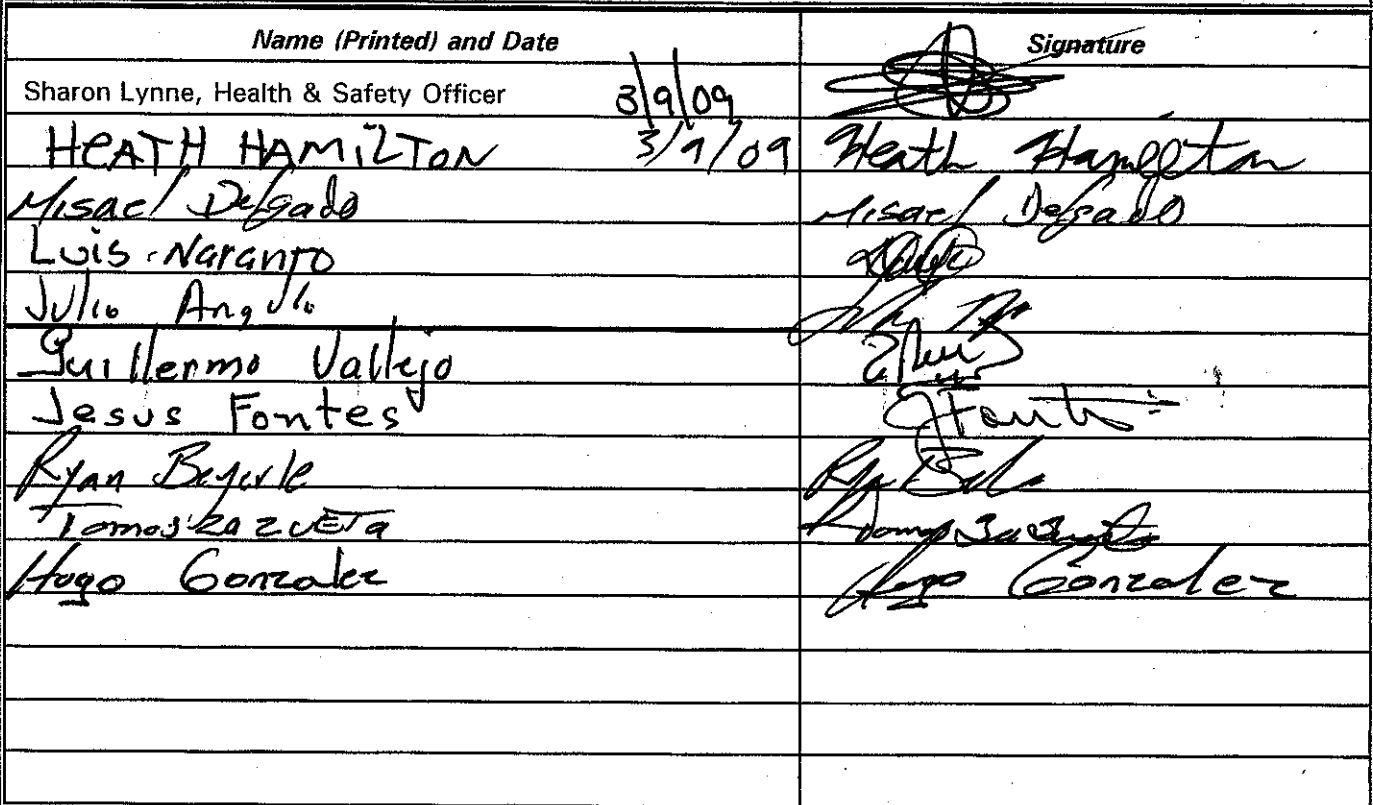 Name (Printed) and Date Signature
Sharon Lynne, Health & Safety Officer 3/9/09
HEATH HAMILTON 3/9/09 Heath Hamilton
Misael Delgado Misael Delgado
Luis Naranjo
Julio Angulo
Guillermo Vallejo
Jesus Fontes JFontes
Ryan Beyerle
Tomas Zazueta Tomas Zazueta
Hugo Gonzalez Hugo Gonzalez